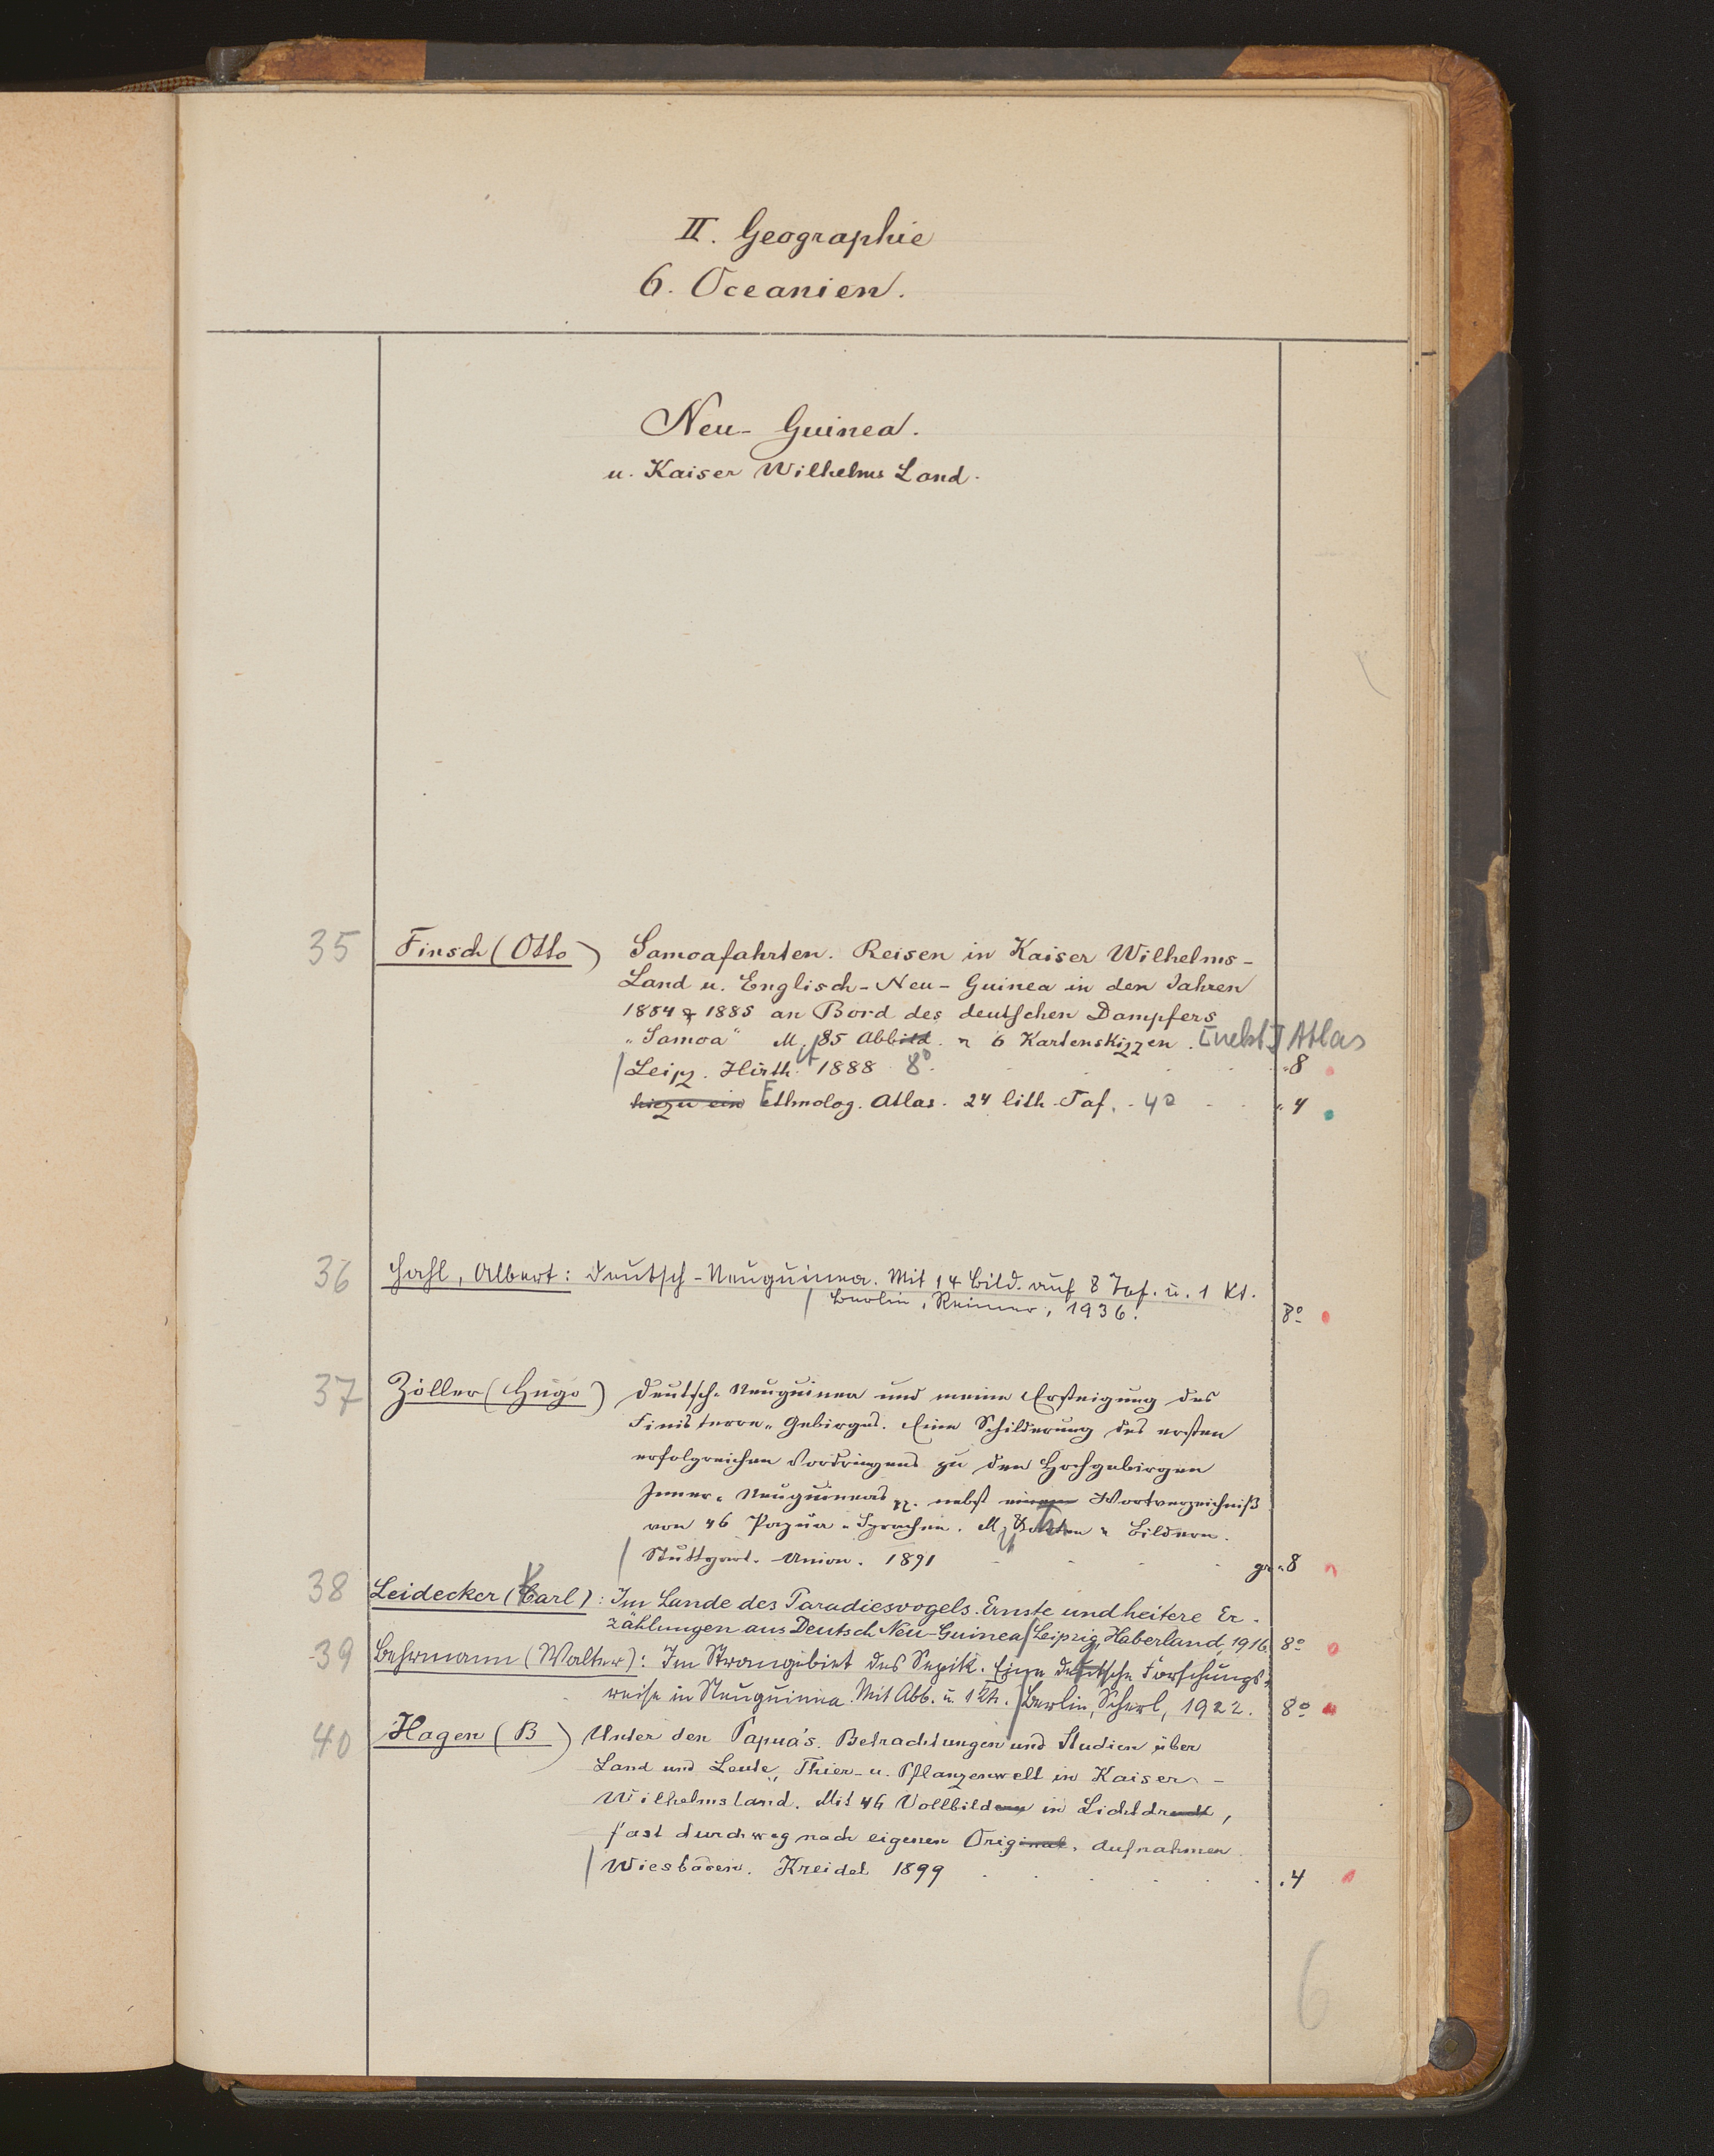 II. Geographie
6. Oceanien.
Neu-Guinea.
u. Kaiser Wilhelms Land.
35 Finsch (Otto) Samoafahrten. Reisen in Kaiser Wilhelms-
Land u. Englisch-Neu-Guinea in den Jahren
1884 & 1885 an Bord des deutschen Dampfers
"Samoa" M. 85 Abbild. u 6 Kartenskizzen. [nebst] Atlas
Leipz. Hirth. 1888 8°. 8
hiezu ein Ethnolog. Atlas. 24 lith. Taf. 4° 4
36 Hahl, Albert: Deutsch-Neuguinea. Mit 14 Bild. auf 8 Taf. u. 1 Kt.
Berlin, Reimer, 1936. 8°
37 Zöller (Hugo) Deutsch-Neuguinea und meine Ersteigung des
Finisterre-Gebirges. Eine Schilderung des ersten
erfolgreichen Vordringens zu den Hochgebirgen
Inner-Neuguineas nebst einem Wortverzeichniß
von 46 Papua-Sprachen. M. Karten u Bildern.
Stuttgart. Union. 1891 gr. 8
38 Leidecker (Karl): Im Lande des Paradiesvogels. Ernste und heitere Er-
zählungen aus Deutsch Neu-Guinea Leipzig, Haberland, 1916. 8°
39 Behrmann (Walter): Im Stromgebiet des Sepik. Eine deutsche Forschungs-
reise in Neuguinea. Mit Abb. u. 1 Kt. Berlin, Scherl, 1922. 8°
40 Hagen (B) Unter den Papua's. Betrachtungen und Studien über
Land und Leute, Thier- u. Pflanzenwelt in Kaiser-
Wilhelmsland. Mit 46 Vollbildern in Lichtdruck,
fast durchweg nach eigenen Original. Aufnahmen.
Wiesbaden. Kreidel 1899 4
6